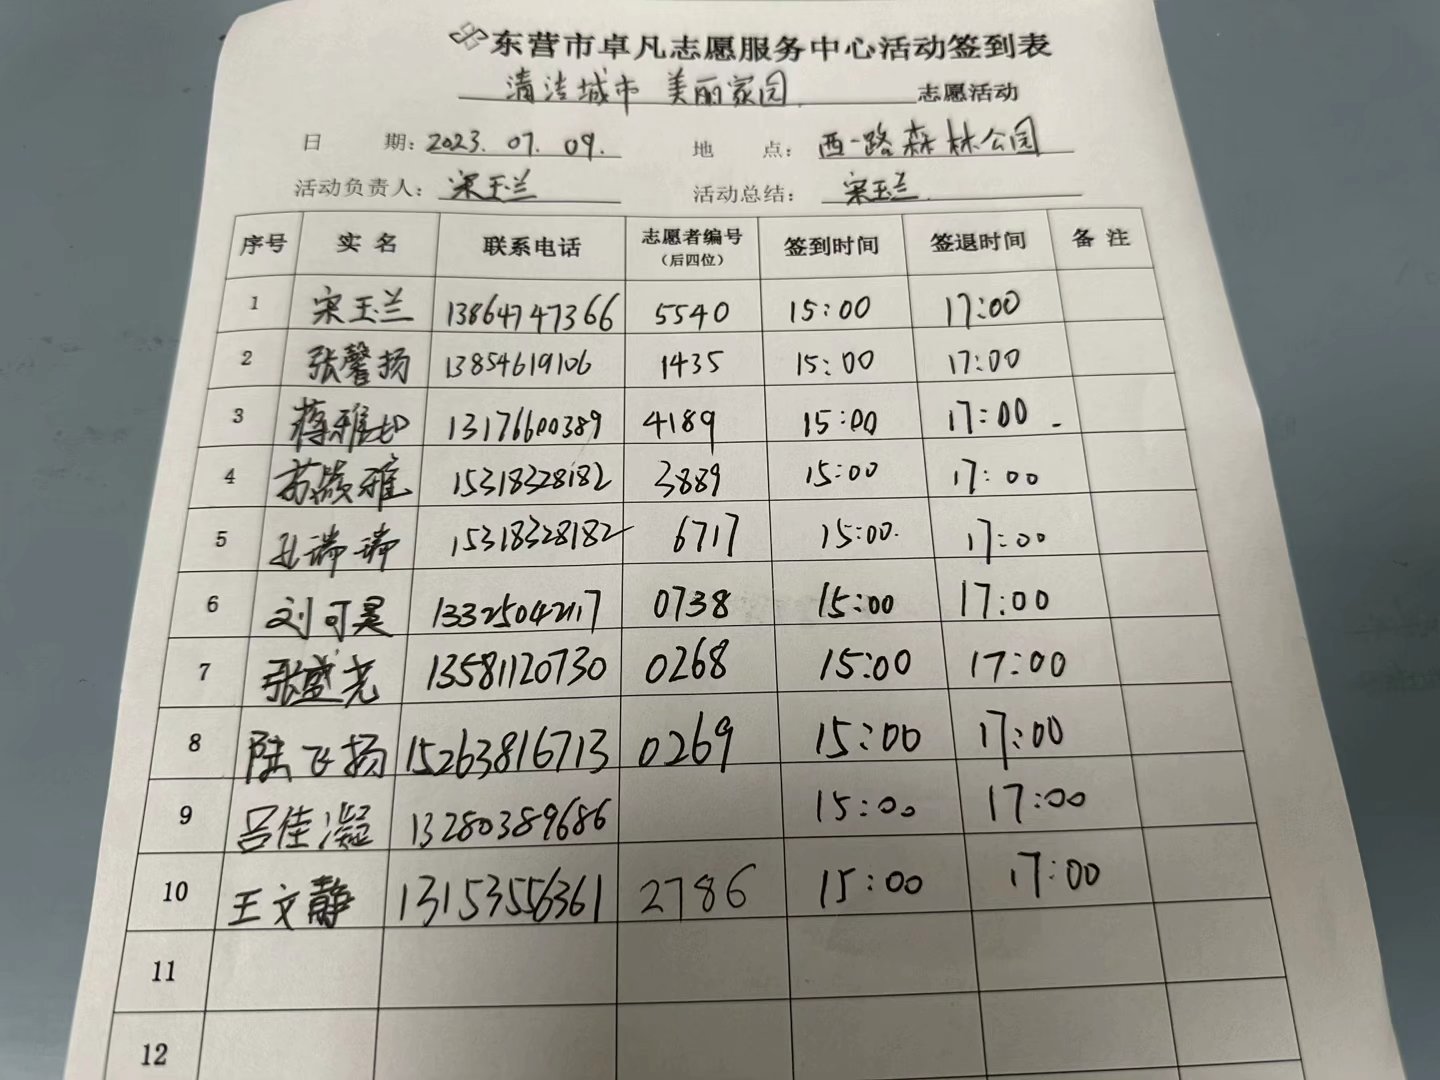 东营市卓凡志愿服务中心活动签到表
清洁城市 美丽家园 志愿活动
日 期: 2023.07.09. 地 点: 西一路森林公园
活动负责人: 宋玉兰 活动总结: 宋玉兰
序号 实 名 联系电话 志愿者编号 (后四位) 签到时间 签退时间 备 注
1 宋玉兰 13864747366 5540 15:00 17:00
2 张馨扬 13854619106 1435 15:00 17:00
3 蒋雅 13176600389 4189 15:00 17:00
4 苏 雅 15318328182 3889 15:00 17:00
5 孔瑞瑞 15318328182 6717 15:00 17:00
6 刘可昊 13325042117 0738 15:00 17:00
7 张盛尧 13581120730 0268 15:00 17:00
8 陆飞扬 15263816713 0269 15:00 17:00
9 吕佳凝 13280389686 15:00 17:00
10 王文静 13153556361 2786 15:00 17:00
11
12